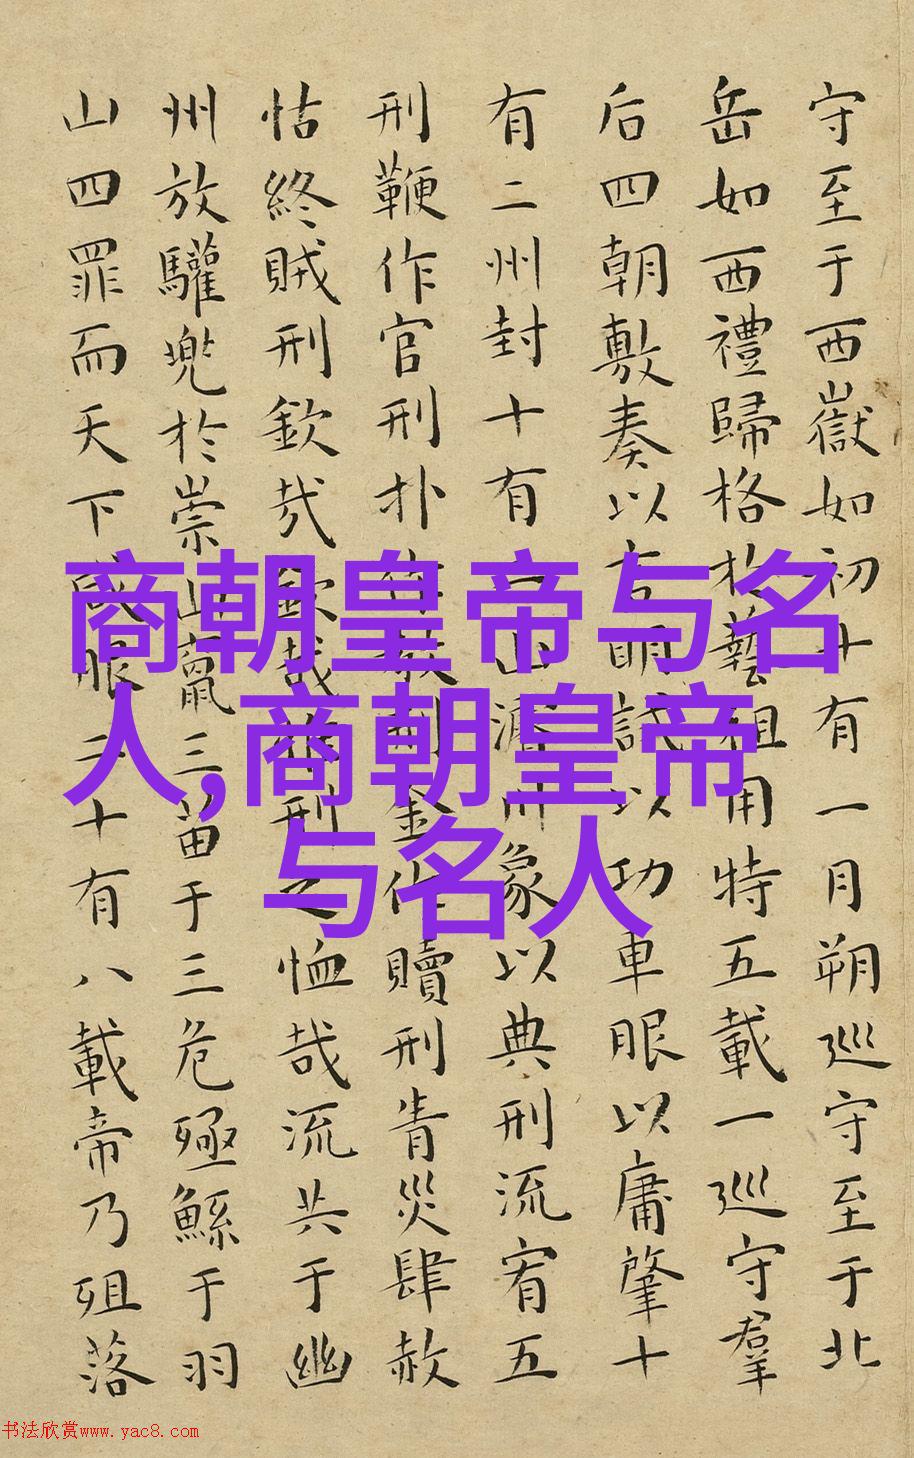 守至于西嶽如初十有一月朔巡守至于北
岳如西禮歸格於藝祖用特五載一巡守羣
后四朝敷奏以言明試以功車服以庸肇十
有二州封十有二山濬川象以典刑流宥五
刑鞭作官刑扑作教刑金作贖刑眚災肆赦
怙終賊刑欽哉欽哉惟刑之恤哉流共于幽
州放驩兜於崇山竄三苗于三危殛鯀于羽
山四罪而天下咸服二十有八載帝乃殂落
商朝皇帝与名
人,商朝皇帝
与名人
书法欣赏www.yac8.com